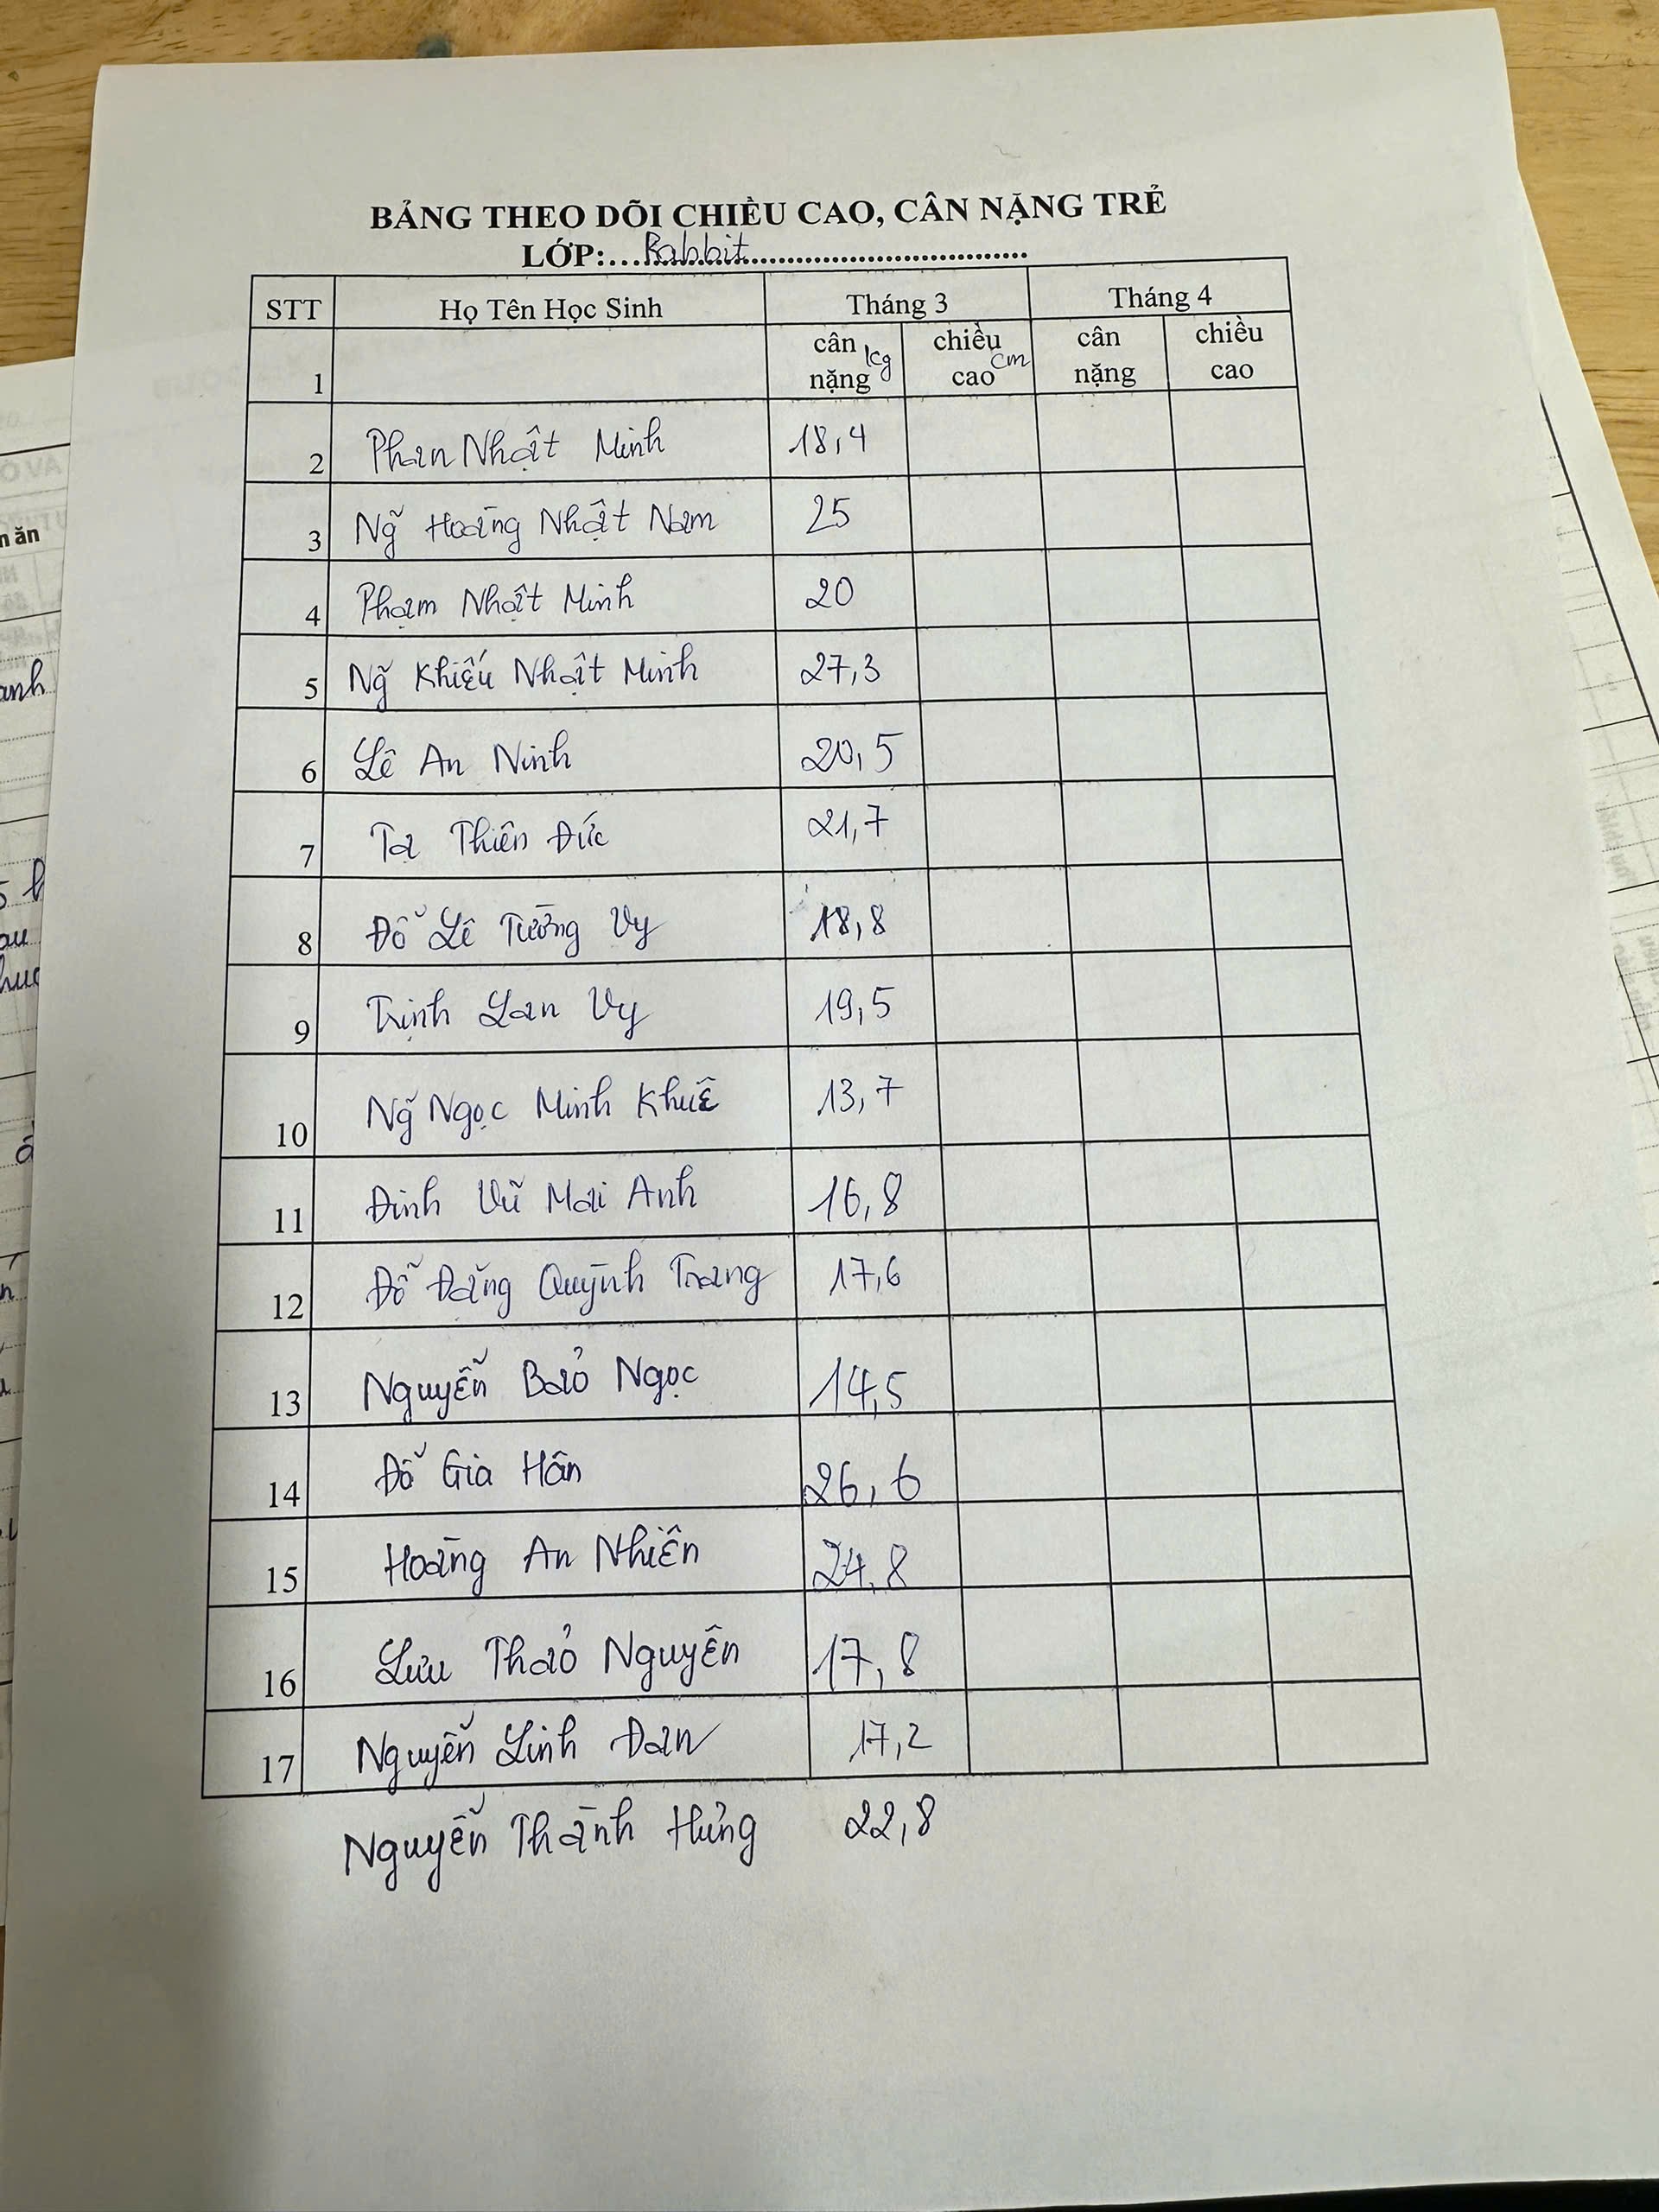 BẢNG THEO DÕI CHIỀU CAO, CÂN NẶNG TRẺ
LỚP:...Rabbit...
STT Họ Tên Học Sinh Tháng 3 Tháng 4
1 cân nặng kg chiều cao cm cân nặng chiều cao
2 Phan Nhật Minh 18,4
3 Ng̃ Hoàng Nhật Nam 25
4 Phạm Nhật Minh 20
5 Ng̃ Khiếu Nhật Minh 27,3
6 Lê An Ninh 20,5
7 Tạ Thiên Đức 21,7
8 Đỗ Lê Tường Vy 18,8
9 Trịnh Lan Vy 19,5
10 Ng̃ Ngọc Minh Khuê 13,7
11 Đinh Vũ Mai Anh 16,8
12 Đỗ Đăng Quỳnh Trang 17,6
13 Nguyễn Bảo Ngọc 14,5
14 Đỗ Gia Hân 26,6
15 Hoàng An Nhiên 24,8
16 Lưu Thảo Nguyên 17,8
17 Nguyễn Linh Đan 17,2
Nguyễn Thành Hưng 22,8